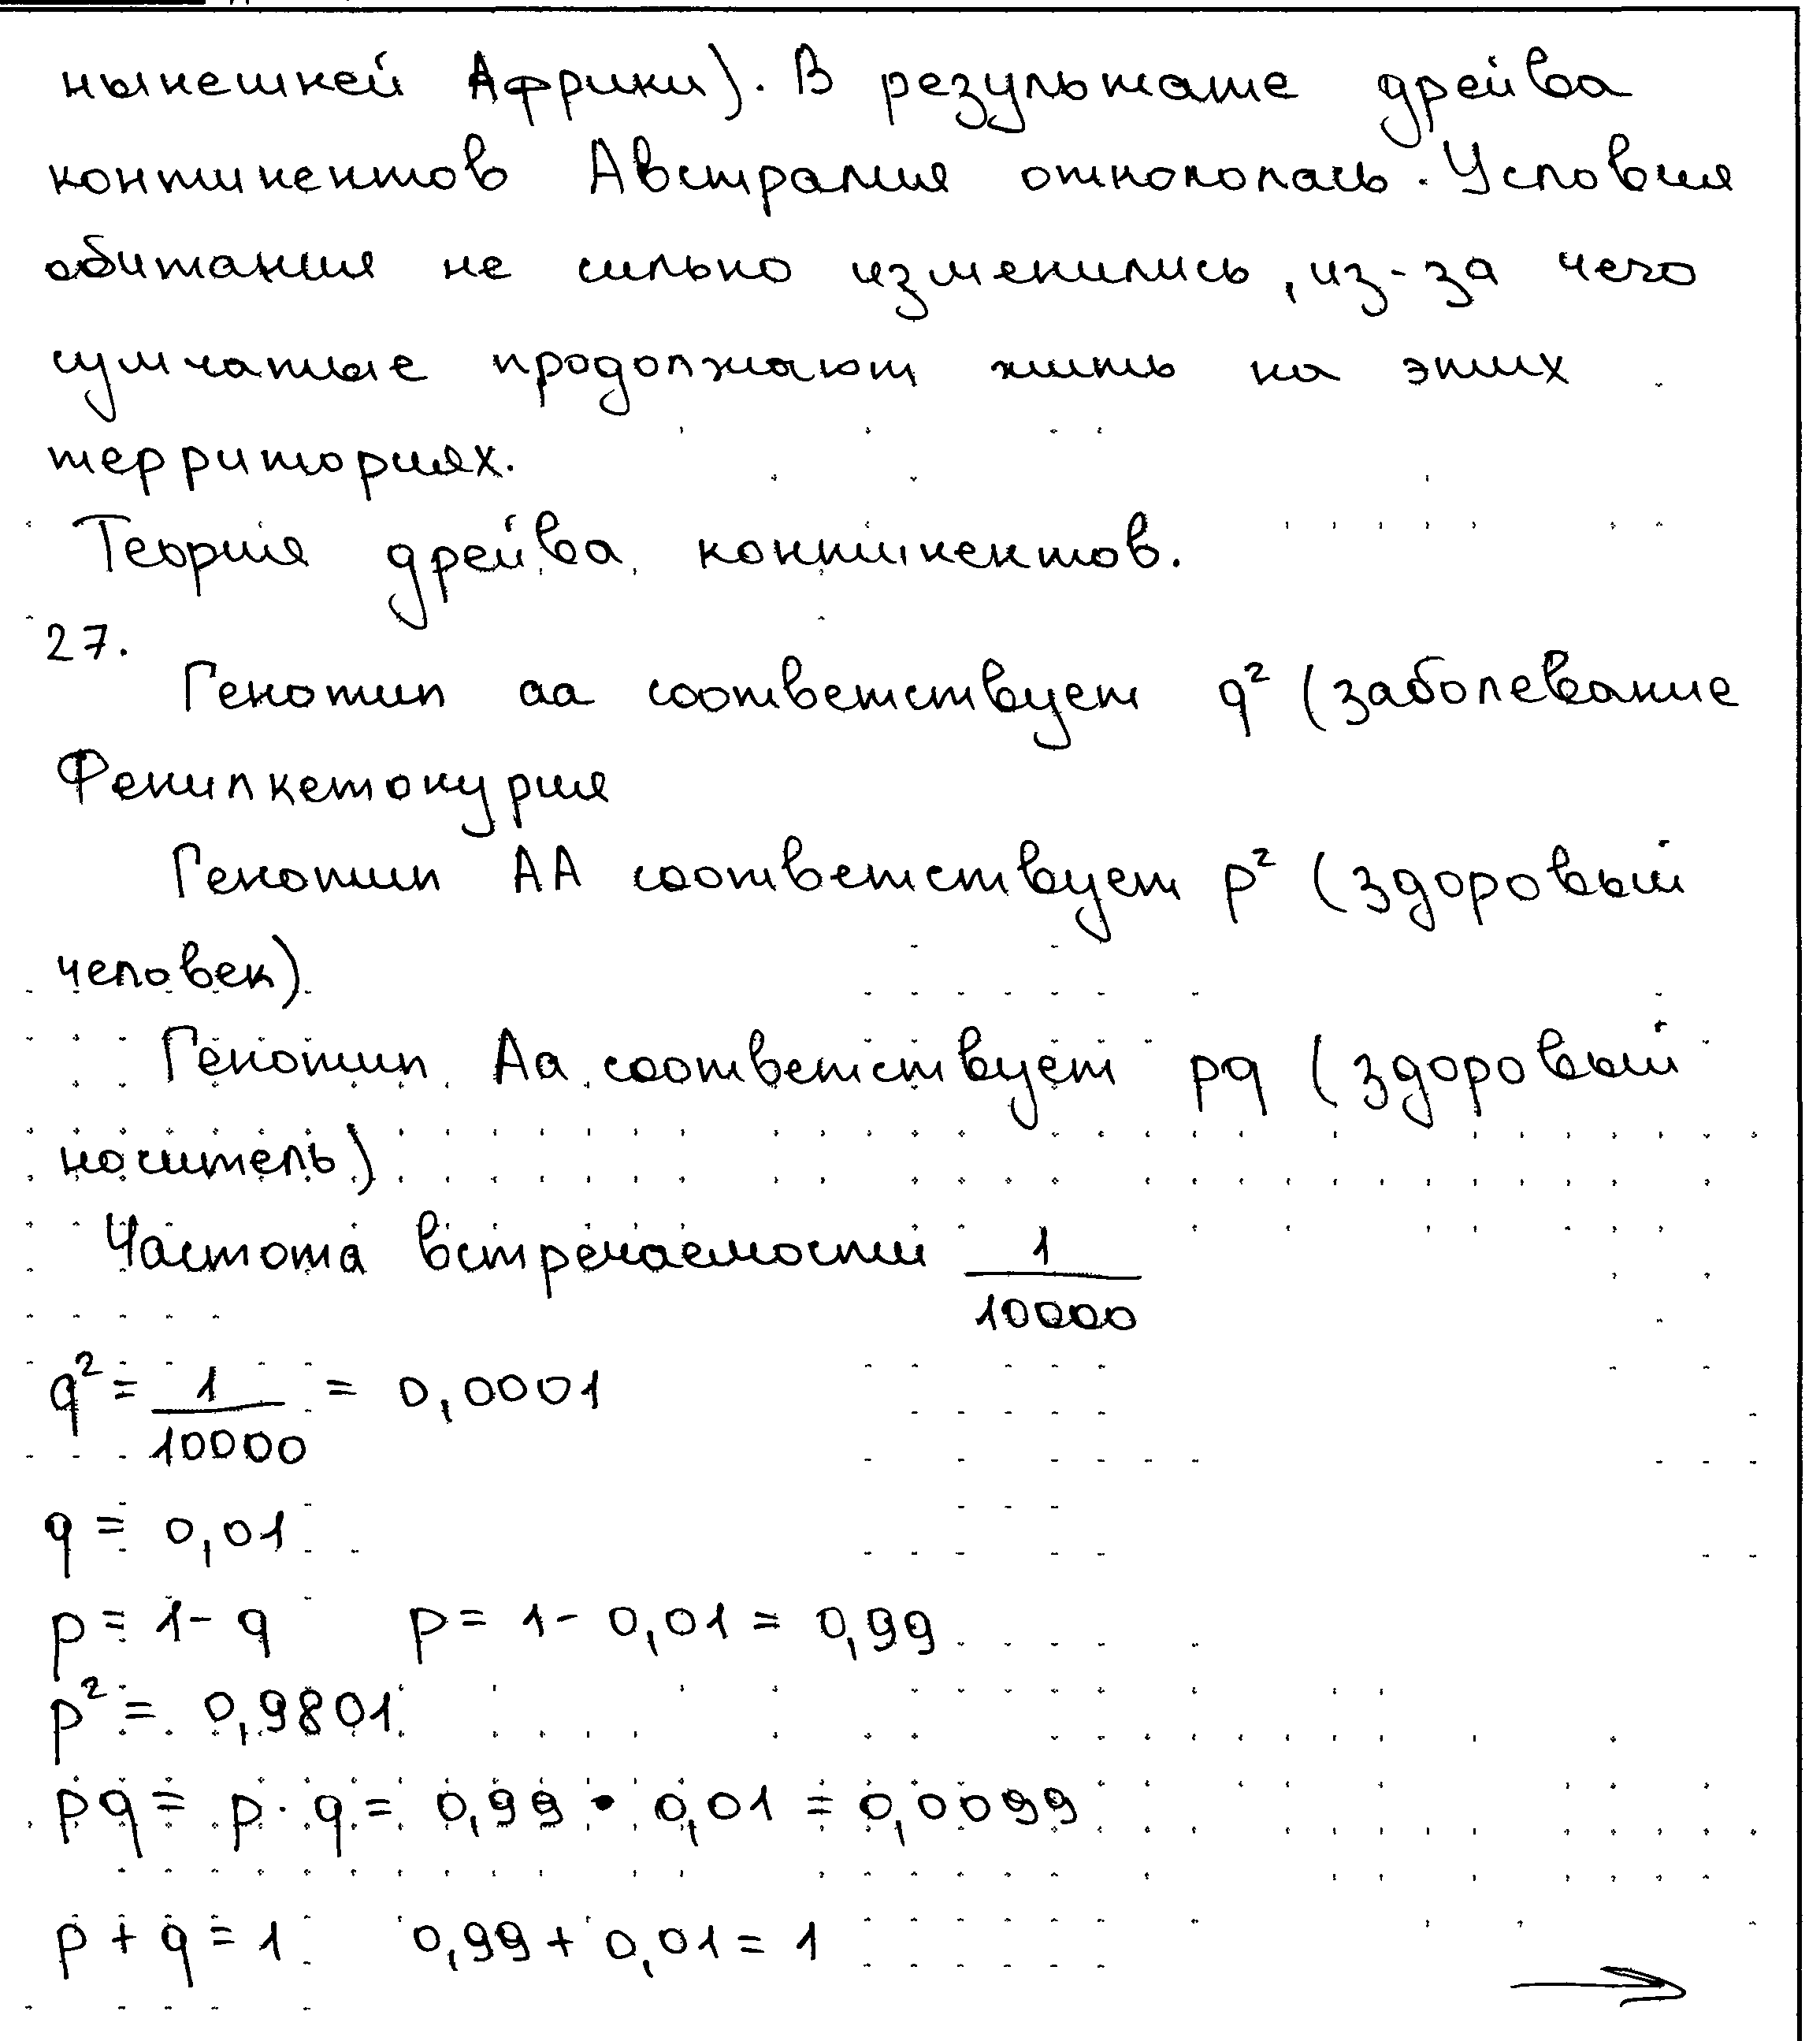 нынешней Африки). В результате дрейва
континентов Австралия откололась. Условия
обитания не сильно изменились, из-за чего
сумчатые продолжают жить на этих
территориях.
Теория дрейва континентов.
27.
Генотип аа соответствует q² (заболевание
Фенилкетонурия
Генотип АА соответствует p² (здоровый
человек)
Генотип Аа соответствует pq (здоровый
носитель)
Частота встречаемости 1/10000
q² = 1/10000 = 0,0001
q = 0,01
p = 1 - q p = 1 - 0,01 = 0,99
p² = 0,9801
pq = p · q = 0,99 · 0,01 = 0,0099
p + q = 1 0,99 + 0,01 = 1
→